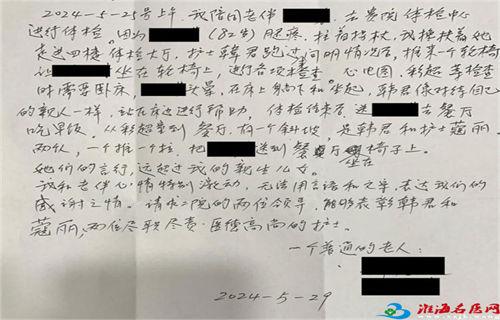 2024-5-25号上午，我陪同老伴 去贵院体检中心
进行体检。因为 (82岁)腿疼，拄着拐杖，我搀扶着她
走进四楼体检大厅，护士韩君跑过问明情况后，推来一个轮椅
让 坐在轮椅上，进行各项检查。心电图，彩超等检查
时需要卧床， 头晕，在床上躺下和坐起，韩君像对待自己
的亲人一样，站在床边进行帮助，体检结束后 送 去餐厅
吃早饭。从彩超室到餐厅，有一个斜坡，是韩君和护士蔻丽，
两人，一个推一个拉，把 送到餐厅坐在椅子上。
她们的言行，远超过我的亲生儿女。
我和老伴心情特别激动，无法用言语和文字，表达我们的
感谢之情。请求二院的两位领导，能够表彰韩君和
蔻丽，两位尽职尽责·医德高尚的护士。
一个普通的老人：
2024-5-29
淮海名医网